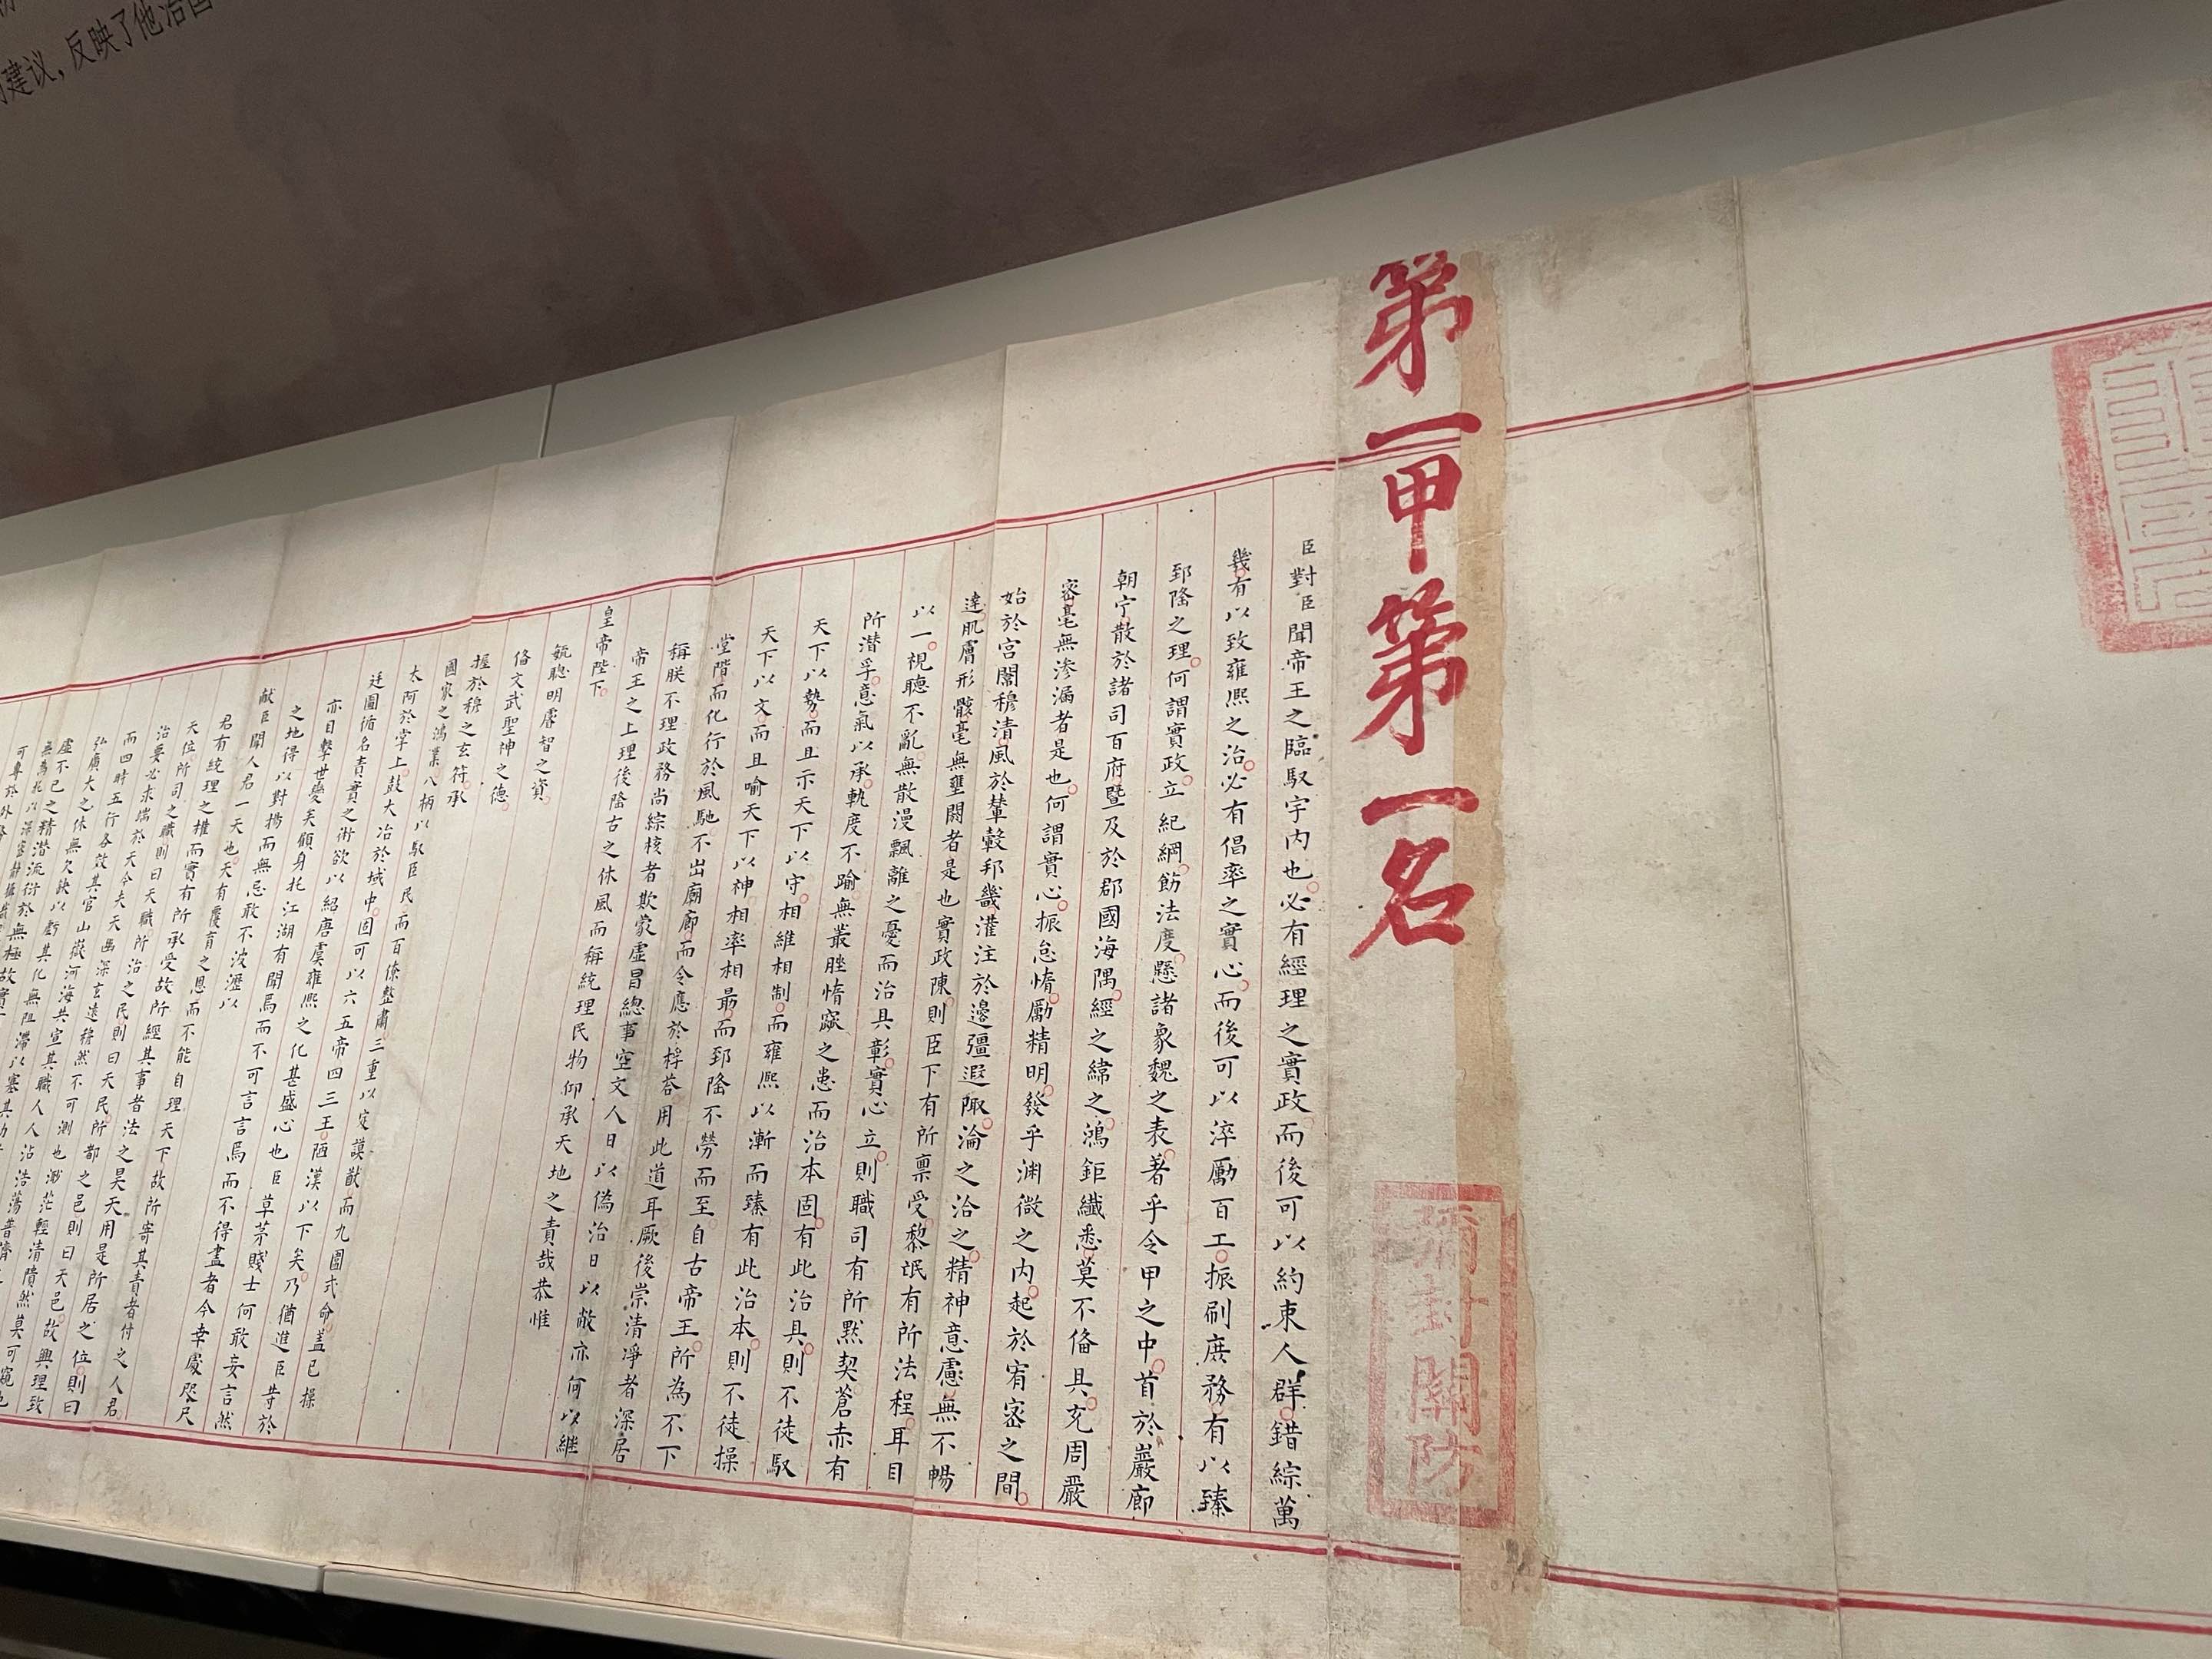 建议，反映了他治国
第一甲第一名
彌封關防
臣對臣聞帝王之臨馭宇內也必有經理之實政而後可以約束人群錯綜萬
幾有以致雍熙之治必有倡率之實心而後可以淬勵百工振刷庶務有以臻
郅隆之理何謂實政立紀綱飭法度懸諸象魏之表著乎令甲之中首於巖廊
朝宁散於諸司百府暨及於郡國海隅經之緯之鴻鉅纖悉莫不俻具充周嚴
密毫無滲漏者是也何謂實心振怠惰勵精明發乎渊微之內起於宥密之間
始於宮闈穆清風於輦轂邦畿灌注於邊疆遐陬淪之洽之精神意慮無不暢
達肌膚形骸毫無壅閼者是也實政陳則臣下有所稟受黎氓有所法程耳目
以一視聽不亂無散漫飄離之憂而治具彰實心立則職司有所默契蒼赤有
所潜孚意氣以承軌度不踰無叢脞惰窳之患而治本固有此治具則不徒馭
天下以勢而且示天下以守相維相制而雍熙以漸而臻有此治本則不徒操
天下以文而且喻天下以神相率相最而郅隆不勞而至自古帝王所為不下
堂階而化行於風馳不出廟廊而令應於桴荅用此道耳厥後崇清凈者深居
稱朕不理政務尚綜核者欺蒙虛冒總事空文人日以偽治日以敝亦何以維
帝王之上理後隆古之休風而稱統理民物仰承天地之責哉恭惟
皇帝陛下
毓聰明睿智之資
俻文武聖神之德
握於穆之玄符承
國家之鴻業八柄以馭臣民而百僚整肅三重以定謨猷而九圍式命蓋已操
太阿於掌上鼓大冶於域中固可以六五帝四三王陋漢以下矣乃猶進臣等於
廷圖循名責實之術欲以紹唐虞雍熙之化甚盛心也臣草茅賤士何敢妄言然
亦目擊世變矣顧身托江湖有聞焉而不可言言焉而不得盡者今幸處咫尺
之地得以對揚而無忌敢不波瀝以
献臣聞人君一天也天有覆育之恩而不能自理天下故所寄其責者付之人君
君有統理之權而實有所承受故所經其事者法之昊天用是所居之位則曰
天位所司之職則曰天職所治之民則曰天民所都之邑則曰天邑故興理致
治要必求端於天今夫天幽深玄遠穆然不可測也渺茫輕清隤然莫可窺也
而四時五行各效其官山嶽河海共宣其職人人沾浩蕩普濟
弘廣大之休無欠缺以虧其化無阻滯以塞其功